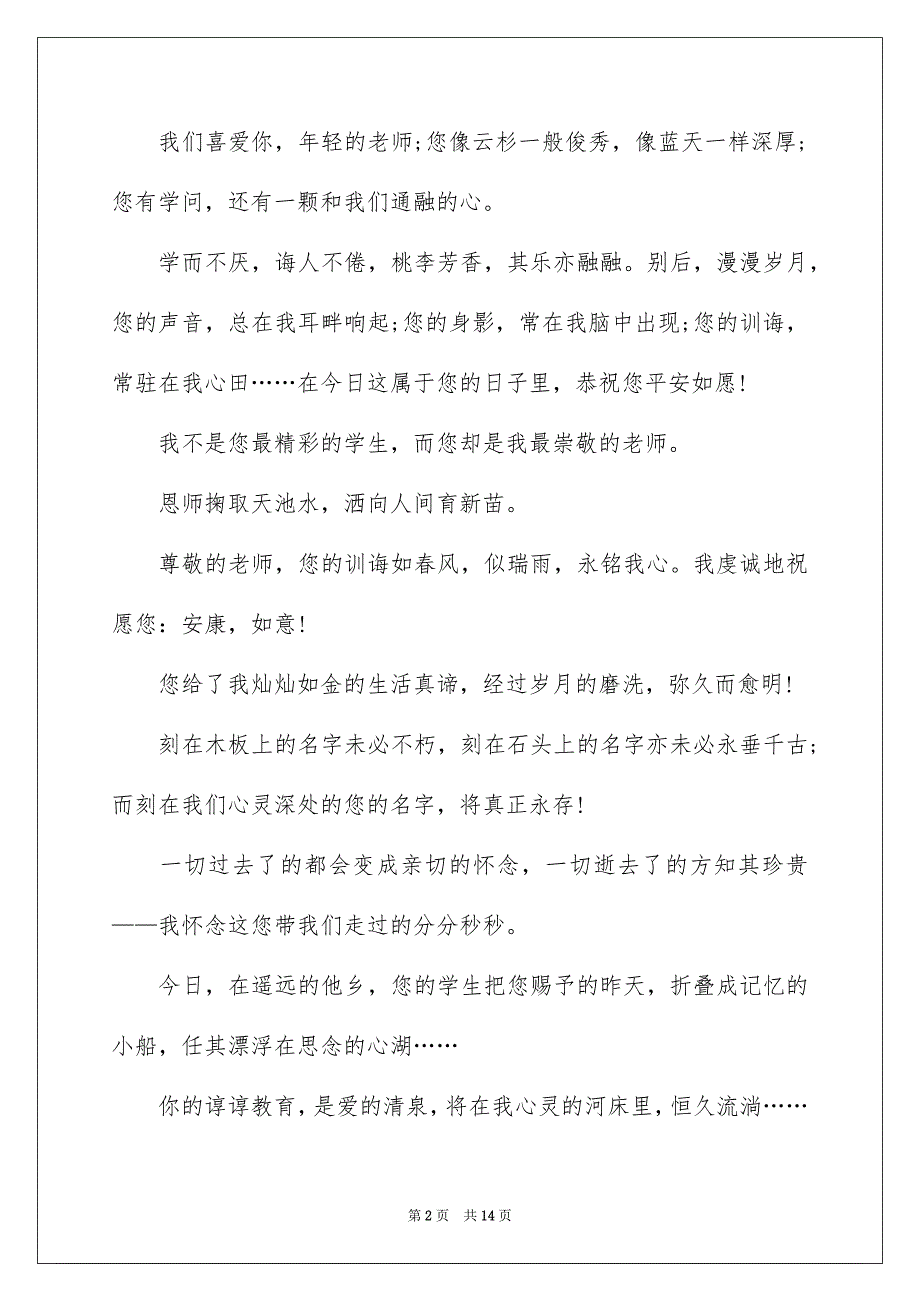 我们喜爱你，年轻的老师;您像云杉一般俊秀，像蓝天一样深厚;
您有学问，还有一颗和我们通融的心。
学而不厌，诲人不倦，桃李芳香，其乐亦融融。别后，漫漫岁月，
您的声音，总在我耳畔响起;您的身影，常在我脑中出现;您的训诲，
常驻在我心田……在今日这属于您的日子里，恭祝您平安如愿!
我不是您最精彩的学生，而您却是我最崇敬的老师。
恩师掬取天池水，洒向人间育新苗。
尊敬的老师，您的训诲如春风，似瑞雨，永铭我心。我虔诚地祝
愿您：安康，如意!
您给了我灿灿如金的生活真谛，经过岁月的磨洗，弥久而愈明!
刻在木板上的名字未必不朽，刻在石头上的名字亦未必永垂千古;
而刻在我们心灵深处的您的名字，将真正永存!
一切过去了的都会变成亲切的怀念，一切逝去了的方知其珍贵
——我怀念这您带我们走过的分分秒秒。
今日，在遥远的他乡，您的学生把您赐予的昨天，折叠成记忆的
小船，任其漂浮在思念的心湖……
你的谆谆教育，是爱的清泉，将在我心灵的河床里，恒久流淌……
第 2 页 共 14 页